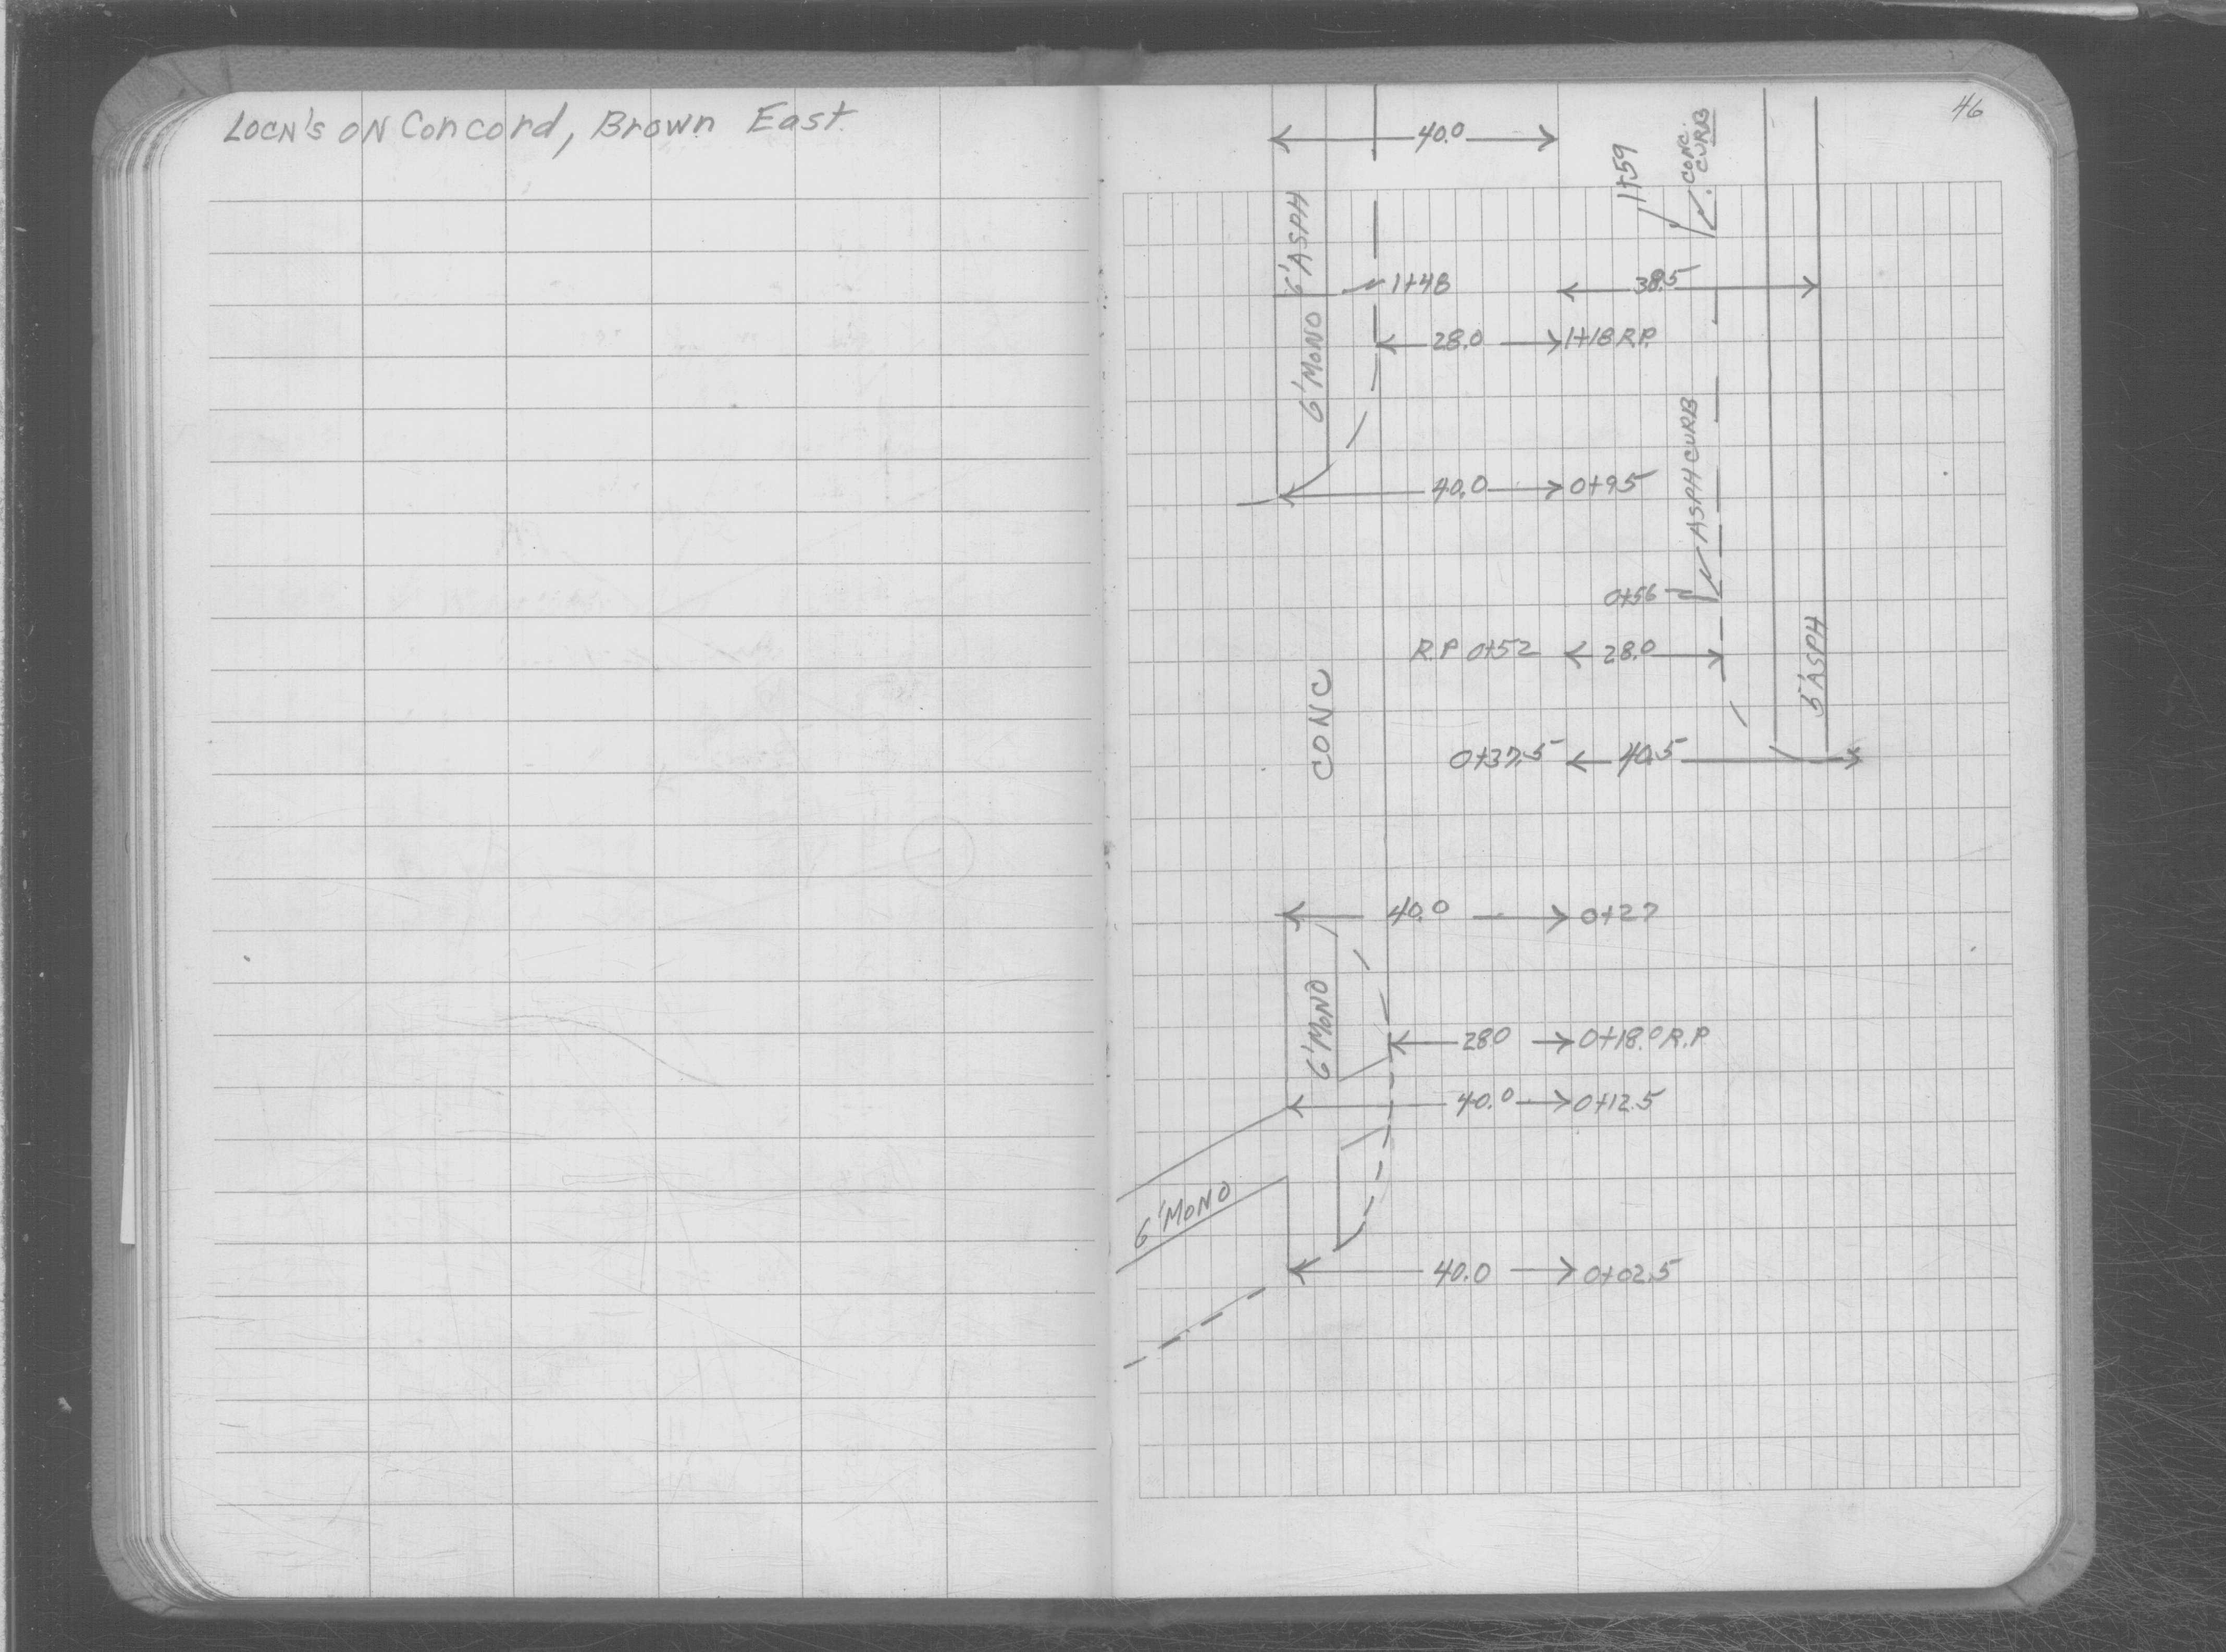 LOCN'S ON Concord, Brown East.
46
40.0
1+59
CONC.
CURB
6' ASPH
1+48
38.5
28.0 1+18 R.P.
6' MONO
ASPH CURB
40.0 0+95
0+56
R.P 0+52 28.0
5' ASPH
CONC
0+37.5 40.5
40.0 0+27
6' MONO
28.0 0+18.0 R.P
40.0 0+12.5
6' MONO
40.0 0+02.5